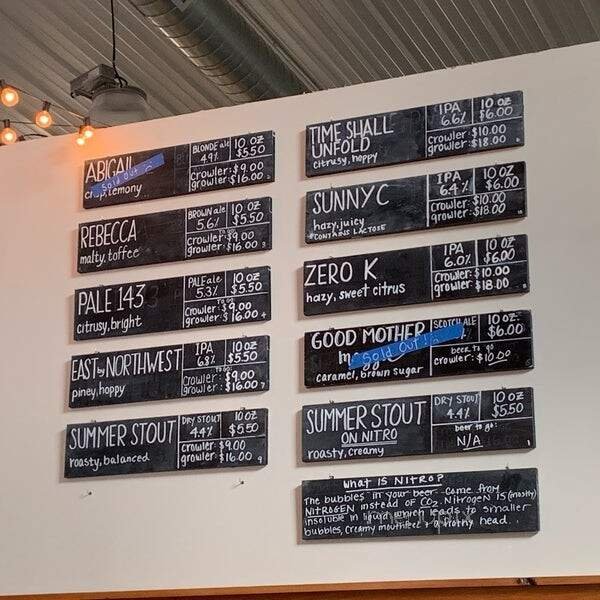 ABIGAIL
Sold Out
crisp, lemony
BLONDE ale
4.9%
10 oz
$5.50
crowler: $9.00
growler: $16.00
REBECCA
malty, toffee
BROWN ale
5.6%
10 oz
$5.50
TO GO
crowler: $9.00
growler: $16.00
PALE 143
citrusy, bright
PALE ale
5.3%
10 oz
$5.50
TO GO
crowler: $9.00
growler: $16.00
EAST by NORTHWEST
piney, hoppy
IPA
6.8%
10 oz
$5.50
TO GO:
Crowler: $9.00
growler: $16.00
SUMMER STOUT
roasty, balanced
DRY STOUT
4.4%
10 oz
$5.50
crowler: $9.00
growler: $16.00
TIME SHALL
UNFOLD
citrusy, hoppy
IPA
6.6%
10 oz
$6.00
crowler: $10.00
growler: $18.00
SUNNY C
hazy, juicy
*CONTAINS LACTOSE
IPA
6.4%
10 oz
$6.00
crowler: $10.00
growler: $18.00
ZERO K
hazy, sweet citrus
IPA
6.0%
10 oz
$6.00
crowler: $10.00
growler: $18.00
GOOD MOTHER
Sold Out!
caramel, brown sugar
SCOTCH ALE
10 oz
$6.00
beer to go
crowler: $10.00
SUMMER STOUT
ON NITRO
roasty, creamy
DRY STOUT
4.4%
10 oz
$5.50
beer to go:
N/A
What IS NITRO?
The bubbles in your beer come from
NITROGEN instead of CO2. Nitrogen is (mostly)
insoluble in liquid which leads to smaller
bubbles, creamy mouthfeel & a frothy head.